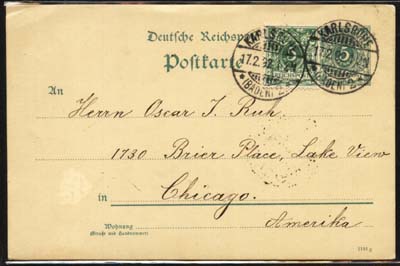 Deutsche Reichspost
Postkarte
KARLSRUHE
17.2.92.
*(BADEN) 2.
KARLSRUHE
17.2.
*(BADEN) 2.
5
An
Herrn Oscar J. Ruh.
1730 Brier Place, Lake View
in Chicago.
Amerika
Wohnung
(Straße und Hausnummer)